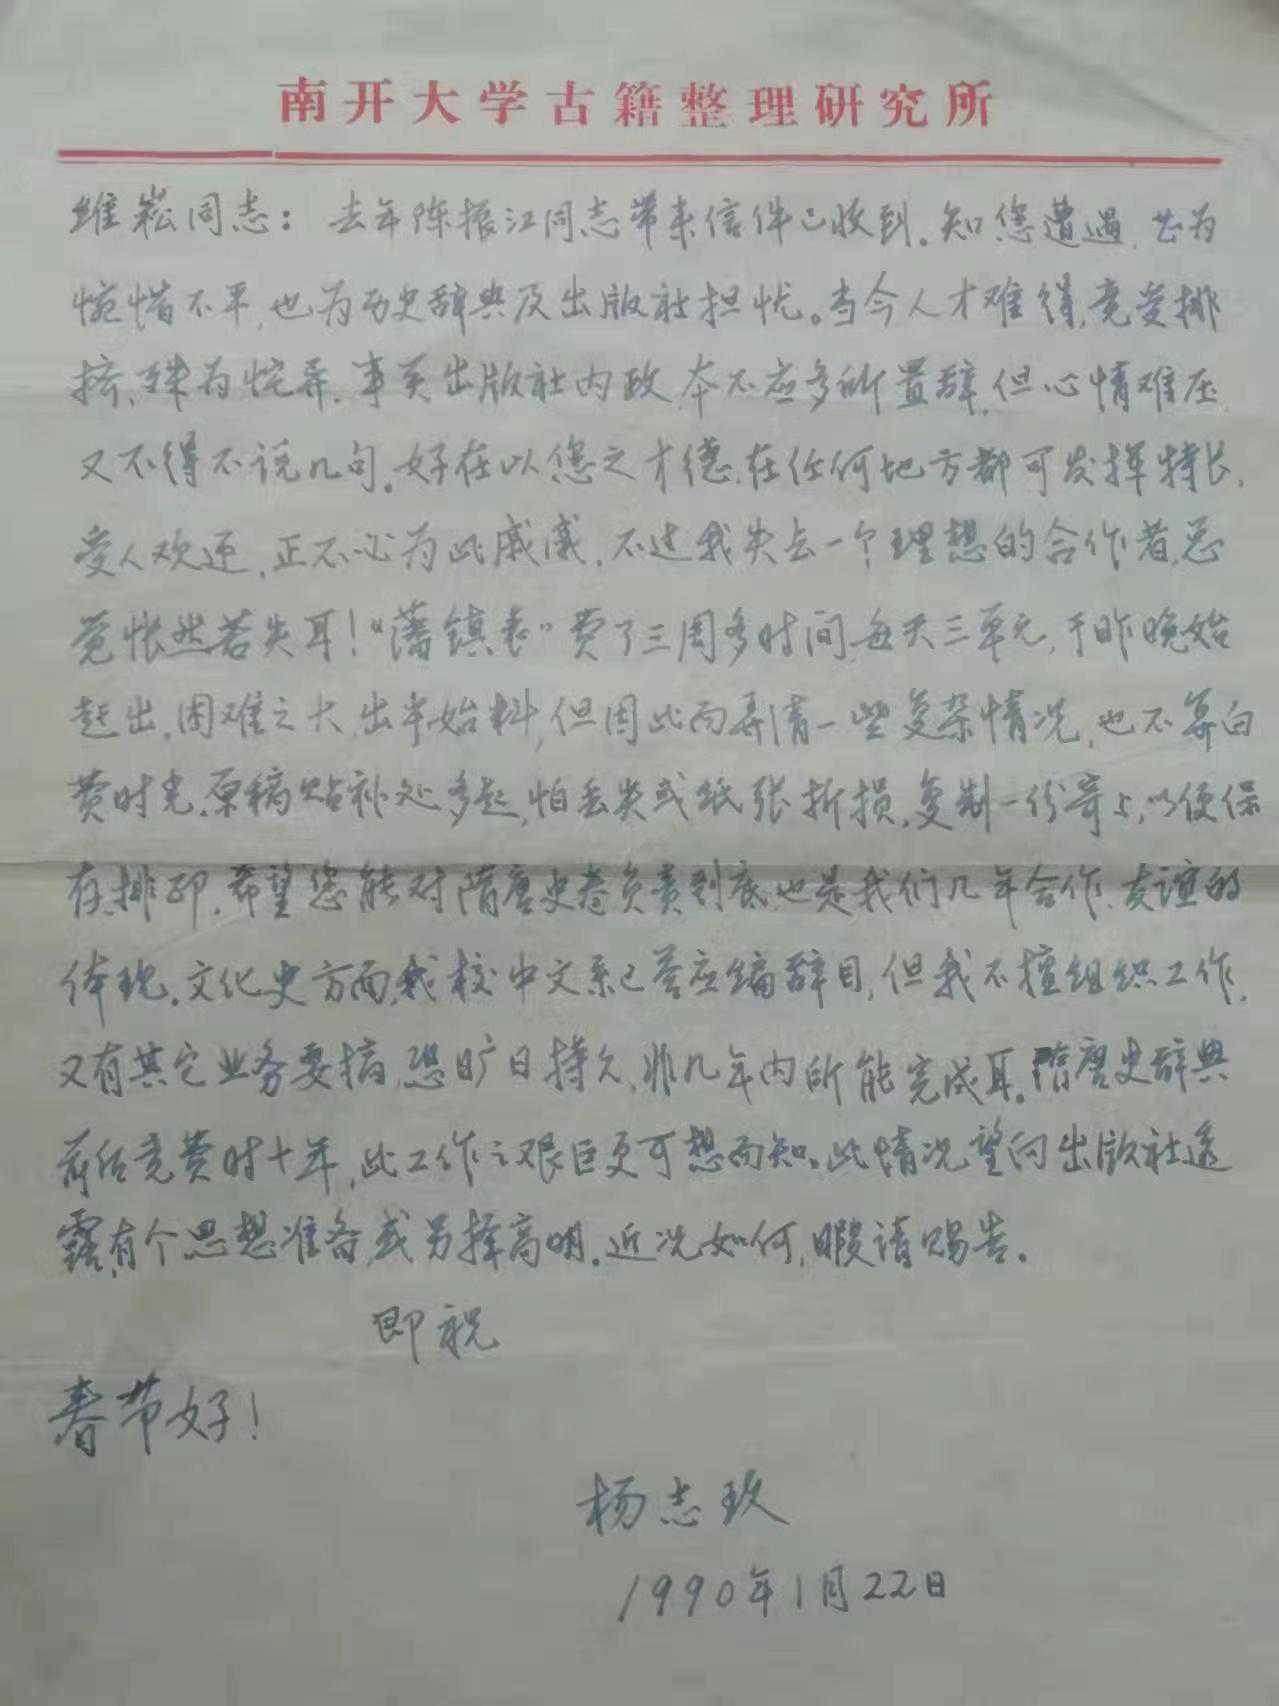 南开大学古籍整理研究所
维崧同志：去年陈振江同志带来信件已收到。知您遭遇，甚为
惋惜不平，也为历史辞典及出版社担忧。当今人才难得，竟受排
挤，殊为怪异。事关出版社内政，本不应多所置辞，但心情难压，
又不得不说几句。好在以您之才德，在任何地方都可发挥特长，
受人欢迎，正不必为此戚戚，不过我失去一个理想的合作者，总
觉怅然若失耳！“藩镇表”费了三周多时间，每天三单元，于昨晚始
赶出，困难之大，出乎始料，但因此而弄清一些复杂情况，也不算白
费时光。原稿贴补处多起，怕丢失或纸张折损，复制一份寄上，以便保
存、排印。希望您能对隋唐史卷负责到底，也是我们几年合作、友谊的
体现。文化史方面，我校中文系已答应编辞目，但我不擅组织工作，
又有其它业务要搞，恐旷日持久，非几年内所能完成耳。隋唐史辞典
前后竟费时十年，此工作之艰巨更可想而知。此情况望向出版社透
露，有个思想准备，或另择高明。近况如何，暇请赐告。
即祝
春节好！
杨志玖
1990年1月22日